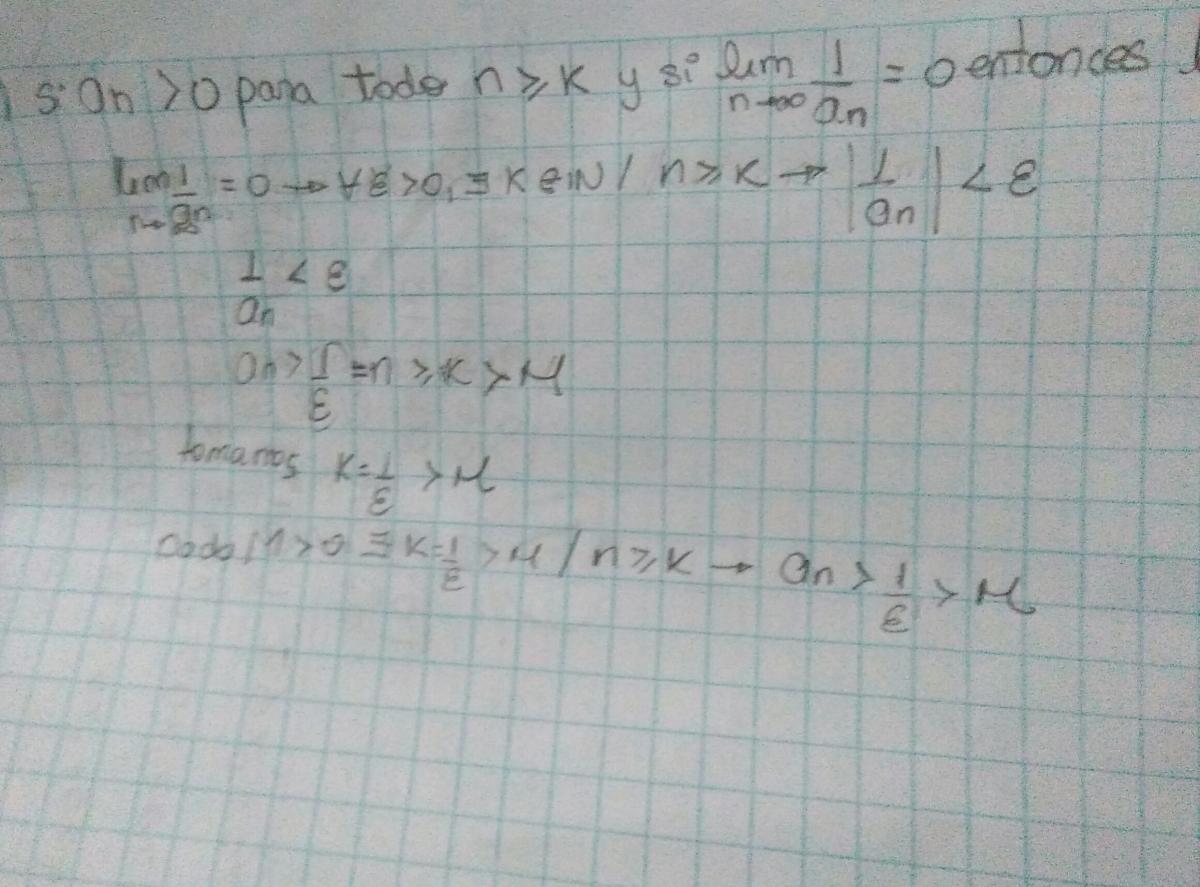 si an > 0 para todo n ≥ K y si lim n→∞ 1/an = 0 entonces
lim n→∞ 1/an = 0 → ∀ε > 0, ∃ K ∈ IN / n ≥ K → |1/an| < ε
1/an < ε
an > 1/ε = n ≥ K > M
tomamos K = 1/ε > M
Dado M > 0 ∃ K = 1/ε > M / n ≥ K → an > 1/ε > M